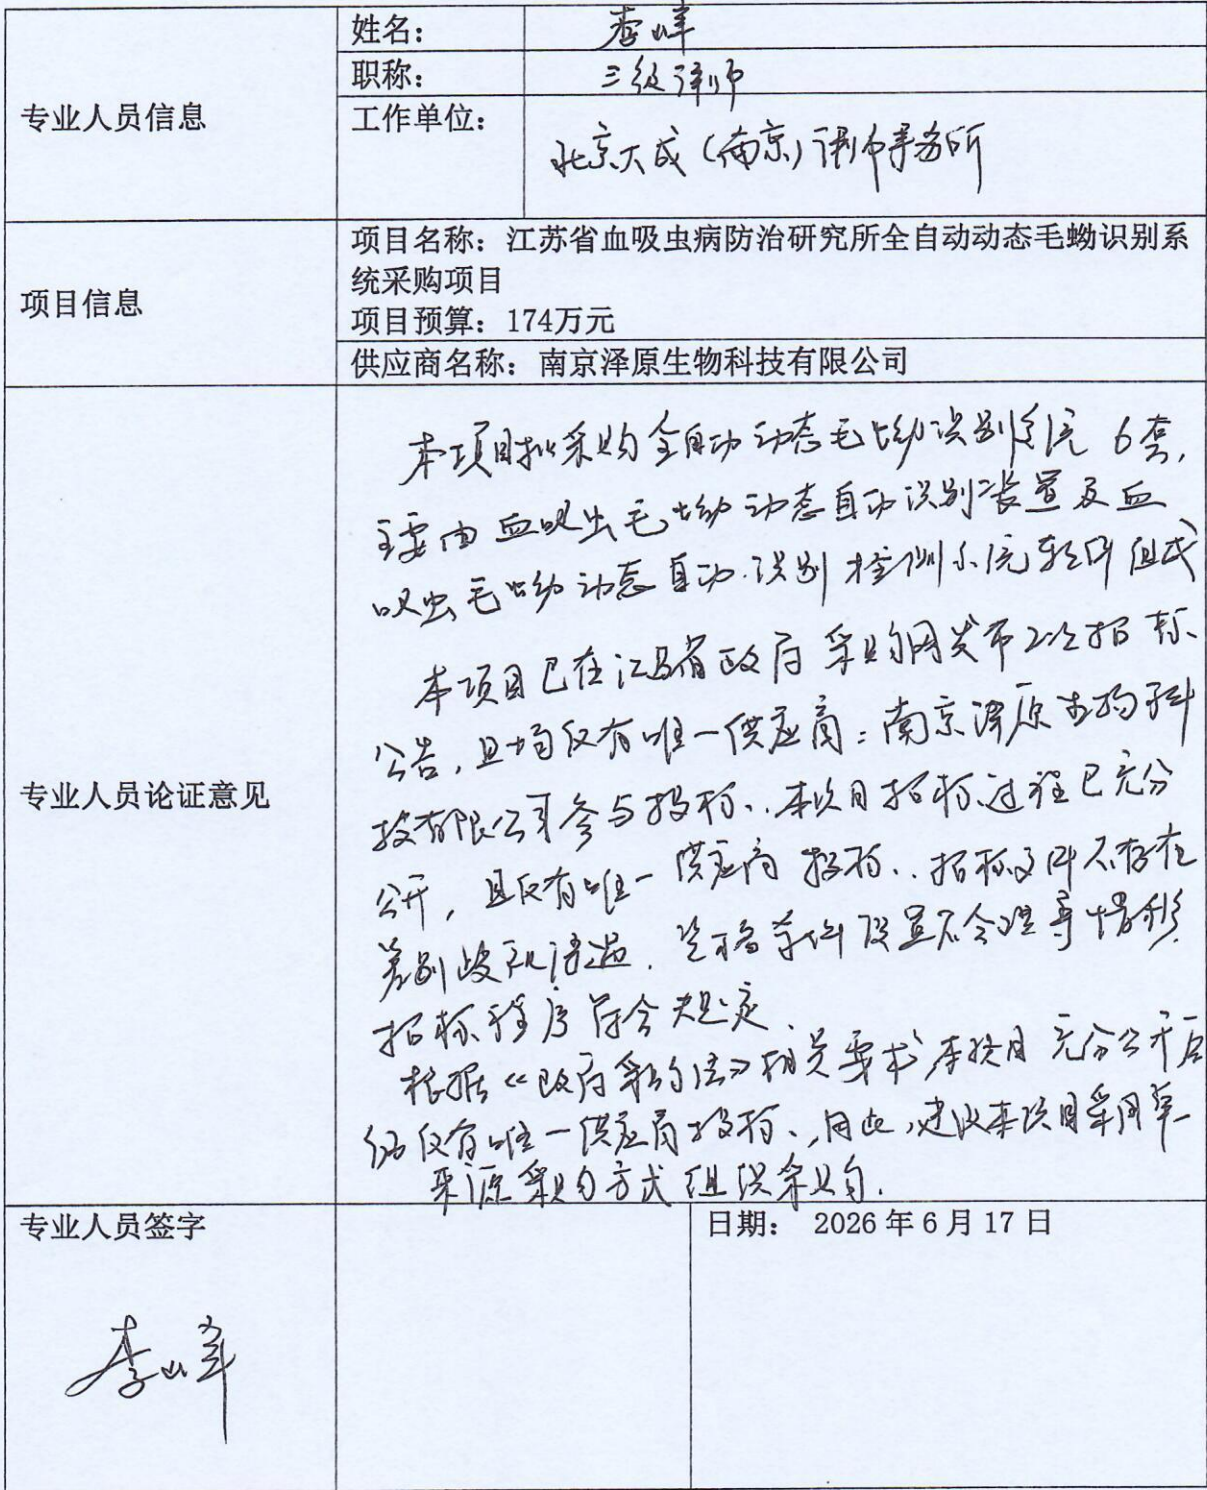 专业人员信息
姓名: 李峰
职称: 三级律师
工作单位: 北京大成(南京)律师事务所
项目信息
项目名称: 江苏省血吸虫病防治研究所全自动动态毛蚴识别系
统采购项目
项目预算: 174万元
供应商名称: 南京泽原生物科技有限公司
专业人员论证意见
本项目拟采购全自动动态毛蚴识别系统 6套,
主要由血吸虫毛蚴动态自动识别装置及血
吸虫毛蚴动态自动识别检测系统软件组成
本项目已在江苏省政府采购网发布2次招标
公告,且均仅有唯一供应商:南京泽原生物科
技有限公司参与投标.本项目招标过程已充分
公开,且仅有唯一供应商投标.招标文件不存在
差别歧视待遇.资格条件设置不含误导情形,
招标程序符合规定.
根据《政府采购法》相关要求本项目充分公开后
仍仅有唯一供应商投标,因此,建议本项目采用单一
来源采购方式组织采购.
专业人员签字
李峰
日期: 2026年6月17日